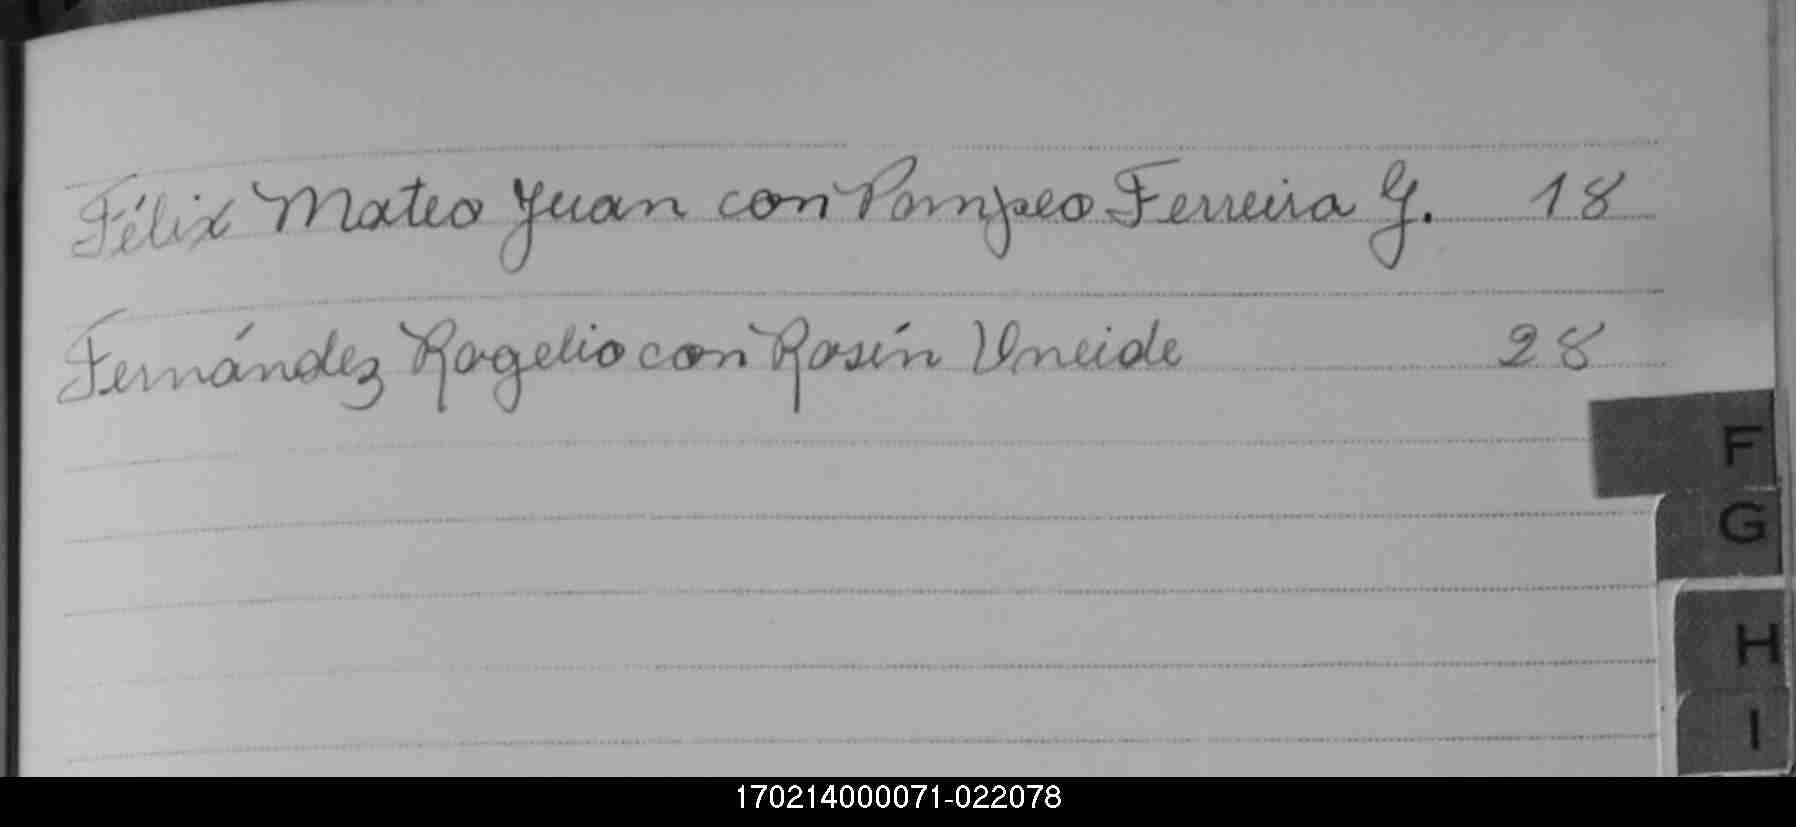 Félix Mateo Juan con Pompeo Ferreira G. 18
Fernández Rogelio con Rosín Uneide 28
F
G
H
I
170214000071-022078